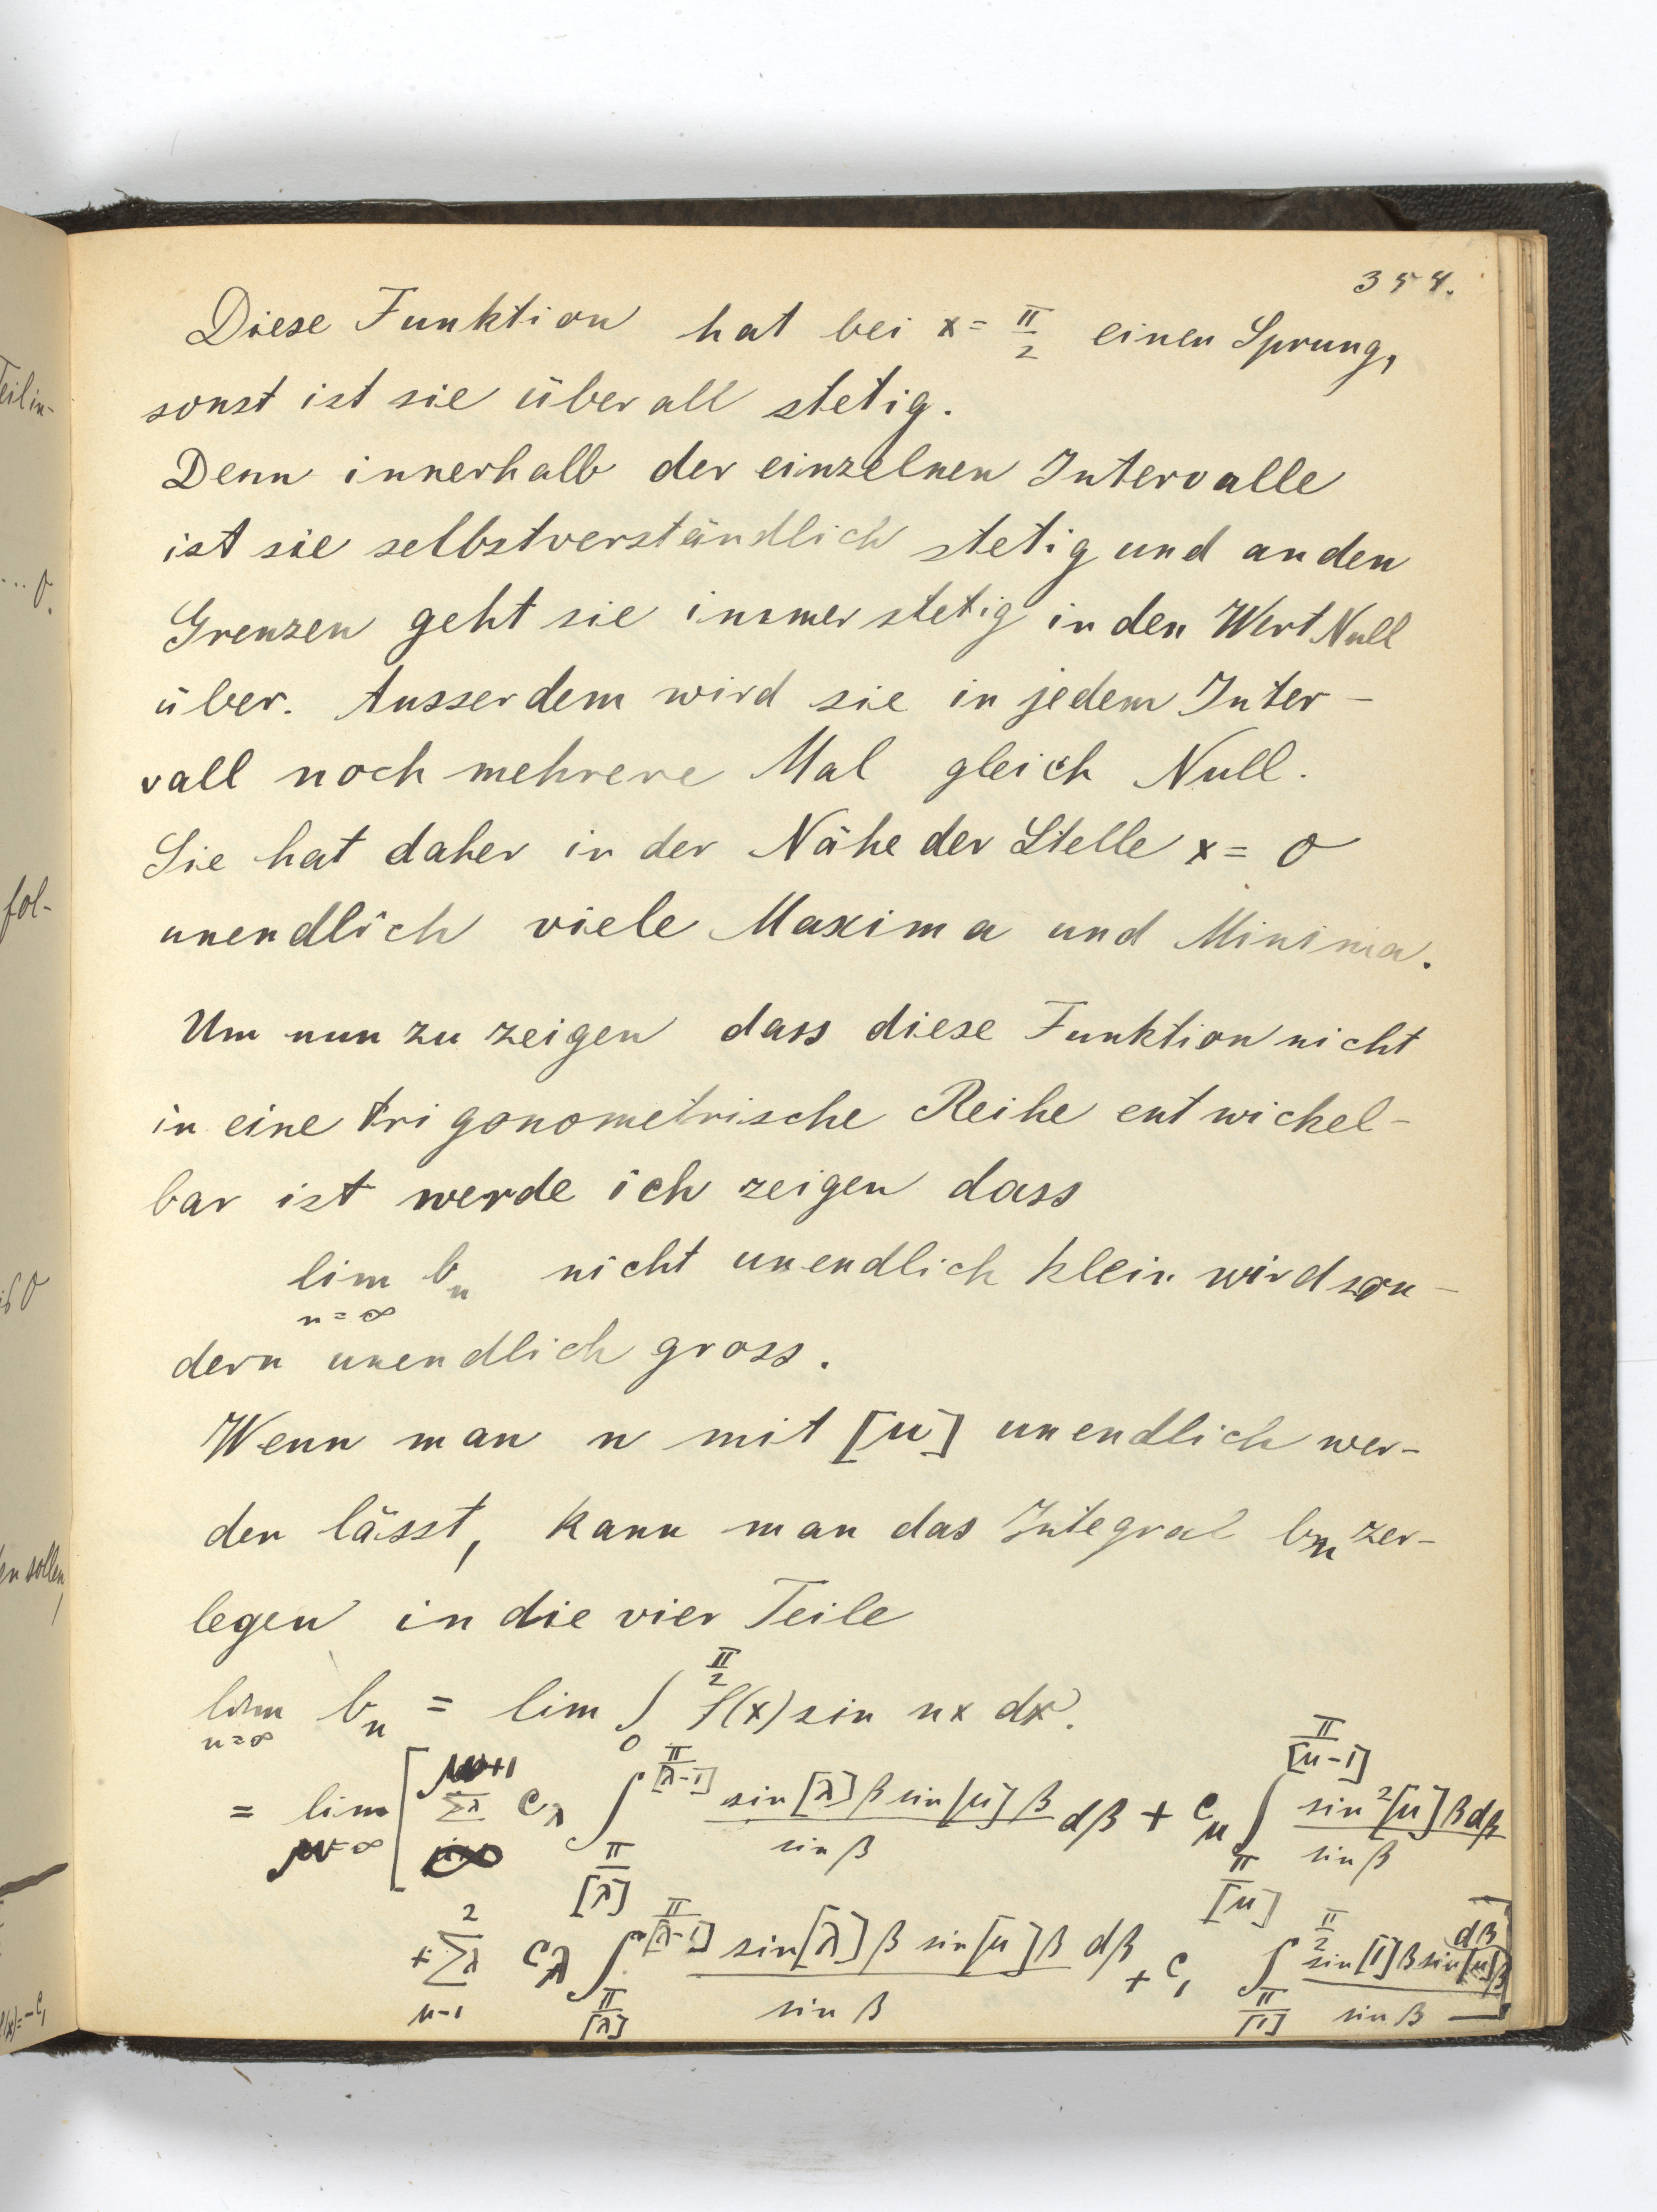 354.
Diese Funktion hat bei x = π/2 einen Sprung,
sonst ist sie überall stetig.
Denn innerhalb der einzelnen Intervalle
ist sie selbstverständlich stetig und an den
Grenzen geht sie immer stetig in den Wert Null
über. Ausserdem wird sie in jedem Inter-
vall noch mehrere Mal gleich Null.
Sie hat daher in der Nähe der Stelle x = 0
unendlich viele Maxima und Minima.
Um nun zu zeigen dass diese Funktion nicht
in eine trigonometrische Reihe entwickel-
bar ist werde ich zeigen dass
lim n=∞ b_n nicht unendlich klein wird son-
dern unendlich gross.
Wenn man n mit [μ] unendlich wer-
den lässt, kann man das Integral b_n zer-
legen in die vier Teile
lim n=∞ b_n = lim ∫_0^{π/2} f(x) sin nx dx.
= lim μ=∞ [ Σλ^{μ+1} c_λ ∫_{π/[λ]}^{π/[λ-1]} sin[λ]β sin[μ]β / sin β dβ + c_μ ∫_{π/[μ]}^{π/[μ-1]} sin²[μ]β dβ / sin β
+ Σλ_{μ-1}^{2} c_λ ∫_{π/[λ]}^{π/[λ-1]} sin[λ]β sin[μ]β dβ / sin β + c_1 ∫_{π/[1]}^{π/2} sin[1]β sin[μ]β dβ / sin β ]
Teil in-
... 0.
fol-
is 0
en sollen,
f(x) = -c_1